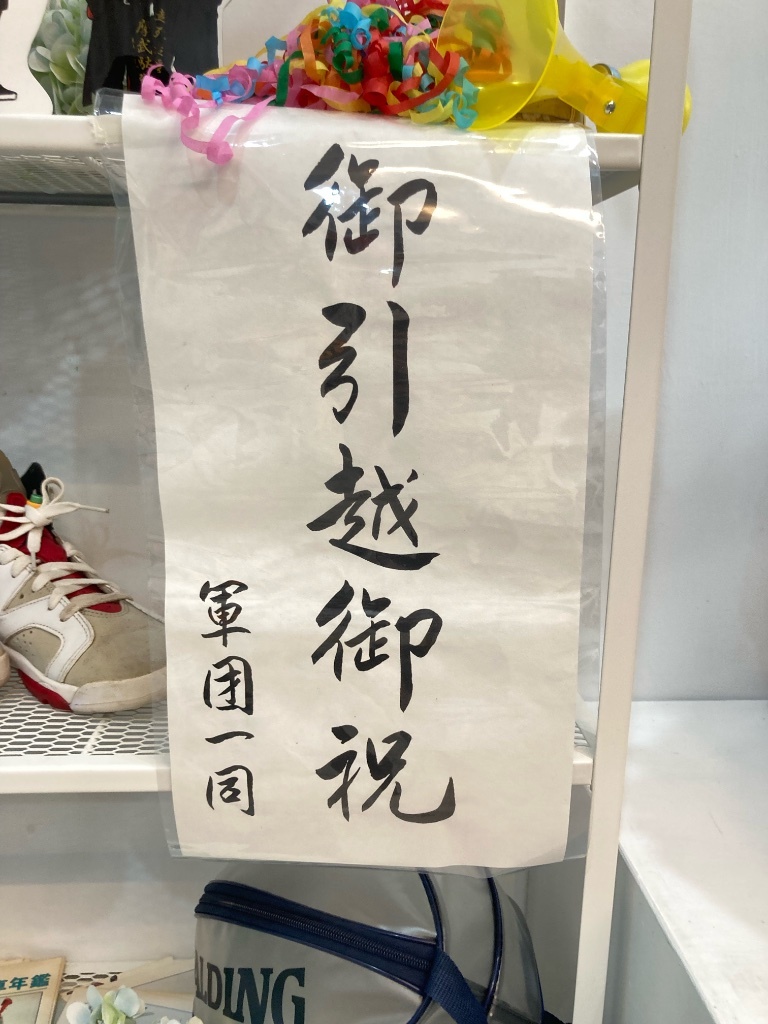 御引越御祝
軍団一同
ALDING
年鑑